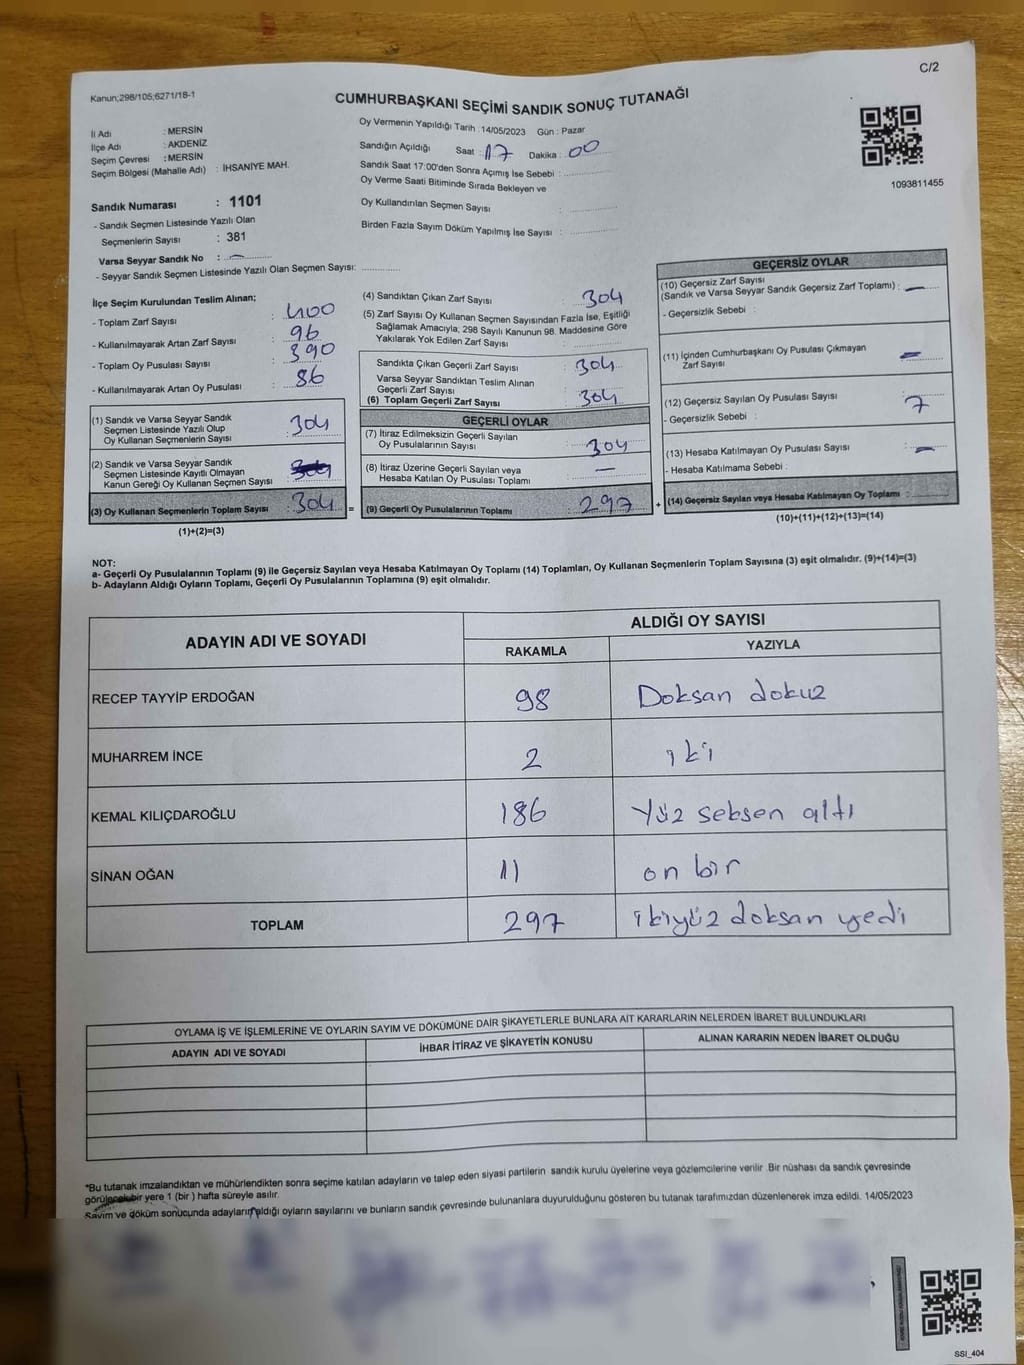 C/2
Kanun;298/105;6271/18-1
CUMHURBAŞKANI SEÇİMİ SANDIK SONUÇ TUTANAĞI
İl Adı : MERSİN
İlçe Adı : AKDENİZ
Seçim Çevresi : MERSİN
Seçim Bölgesi (Mahalle Adı) : İHSANİYE MAH.
Oy Vermenin Yapıldığı Tarih : 14/05/2023 Gün : Pazar
Sandığın Açıldığı Saat : 17 Dakika : 00
Sandık Saat 17:00'den Sonra Açımış İse Sebebi :
Oy Verme Saati Bitiminde Sırada Bekleyen ve
Oy Kullandırılan Seçmen Sayısı :
Birden Fazla Sayım Döküm Yapılmış İse Sayısı :
1093811455
Sandık Numarası : 1101
- Sandık Seçmen Listesinde Yazılı Olan
Seçmenlerin Sayısı : 381
Varsa Seyyar Sandık No : —
- Seyyar Sandık Seçmen Listesinde Yazılı Olan Seçmen Sayısı:
İlçe Seçim Kurulundan Teslim Alınan;
- Toplam Zarf Sayısı : 400
- Kullanılmayarak Artan Zarf Sayısı : 96
- Toplam Oy Pusulası Sayısı : 390
- Kullanılmayarak Artan Oy Pusulası : 86
(1) Sandık ve Varsa Seyyar Sandık
Seçmen Listesinde Yazılı Olup
Oy Kullanan Seçmenlerin Sayısı : 304
(2) Sandık ve Varsa Seyyar Sandık
Seçmen Listesinde Kayıtlı Olmayan
Kanun Gereği Oy Kullanan Seçmen Sayısı :
(3) Oy Kullanan Seçmenlerin Toplam Sayısı : 304 =
(1)+(2)=(3)
(4) Sandıktan Çıkan Zarf Sayısı : 304
(5) Zarf Sayısı Oy Kullanan Seçmen Sayısından Fazla İse, Eşitliği
Sağlamak Amacıyla; 298 Sayılı Kanunun 98. Maddesine Göre
Yakılarak Yok Edilen Zarf Sayısı :
Sandıkta Çıkan Geçerli Zarf Sayısı : 304
Varsa Seyyar Sandıktan Teslim Alınan
Geçerli Zarf Sayısı :
(6) Toplam Geçerli Zarf Sayısı : 304
GEÇERLİ OYLAR
(7) İtiraz Edilmeksizin Geçerli Sayılan
Oy Pusulalarının Sayısı : 304
(8) İtiraz Üzerine Geçerli Sayılan veya
Hesaba Katılan Oy Pusulası Toplamı : —
(9) Geçerli Oy Pusulalarının Toplamı : 297 +
GEÇERSİZ OYLAR
(10) Geçersiz Zarf Sayısı
(Sandık ve Varsa Seyyar Sandık Geçersiz Zarf Toplamı) : —
- Geçersizlik Sebebi :
(11) İçinden Cumhurbaşkanı Oy Pusulası Çıkmayan
Zarf Sayısı : —
(12) Geçersiz Sayılan Oy Pusulası Sayısı : 7
- Geçersizlik Sebebi :
(13) Hesaba Katılmayan Oy Pusulası Sayısı : —
- Hesaba Katılmama Sebebi :
(14) Geçersiz Sayılan veya Hesaba Katılmayan Oy Toplamı :
(10)+(11)+(12)+(13)=(14)
NOT:
a- Geçerli Oy Pusulalarının Toplamı (9) ile Geçersiz Sayılan veya Hesaba Katılmayan Oy Toplamı (14) Toplamları, Oy Kullanan Seçmenlerin Toplam Sayısına (3) eşit olmalıdır. (9)+(14)=(3)
b- Adayların Aldığı Oyların Toplamı, Geçerli Oy Pusulalarının Toplamına (9) eşit olmalıdır.
ADAYIN ADI VE SOYADI ALDIĞI OY SAYISI
RAKAMLA YAZIYLA
RECEP TAYYİP ERDOĞAN 98 Doksan dokuz
MUHARREM İNCE 2 iki
KEMAL KILIÇDAROĞLU 186 Yüz seksen altı
SİNAN OĞAN 11 on bir
TOPLAM 297 ikiyüz doksan yedi
OYLAMA İŞ VE İŞLEMLERİNE VE OYLARIN SAYIM VE DÖKÜMÜNE DAİR ŞİKAYETLERLE BUNLARA AİT KARARLARIN NELERDEN İBARET BULUNDUKLARI
ADAYIN ADI VE SOYADI İHBAR İTİRAZ VE ŞİKAYETİN KONUSU ALINAN KARARIN NEDEN İBARET OLDUĞU
*Bu tutanak imzalandıktan ve mühürlendikten sonra seçime katılan adayların ve talep eden siyasi partilerin sandık kurulu üyelerine veya gözlemcilerine verilir .Bir nüshası da sandık çevresinde
görülecek bir yere 1 (bir ) hafta süreyle asılır.
Sayım ve döküm sonucunda adayların aldığı oyların sayılarını ve bunların sandık çevresinde bulunanlara duyurulduğunu gösteren bu tutanak tarafımızdan düzenlenerek imza edildi. 14/05/2023
SSI_404